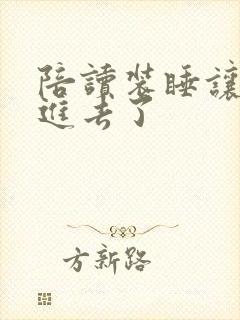 陪讀裝睡讓
進去了
方新路